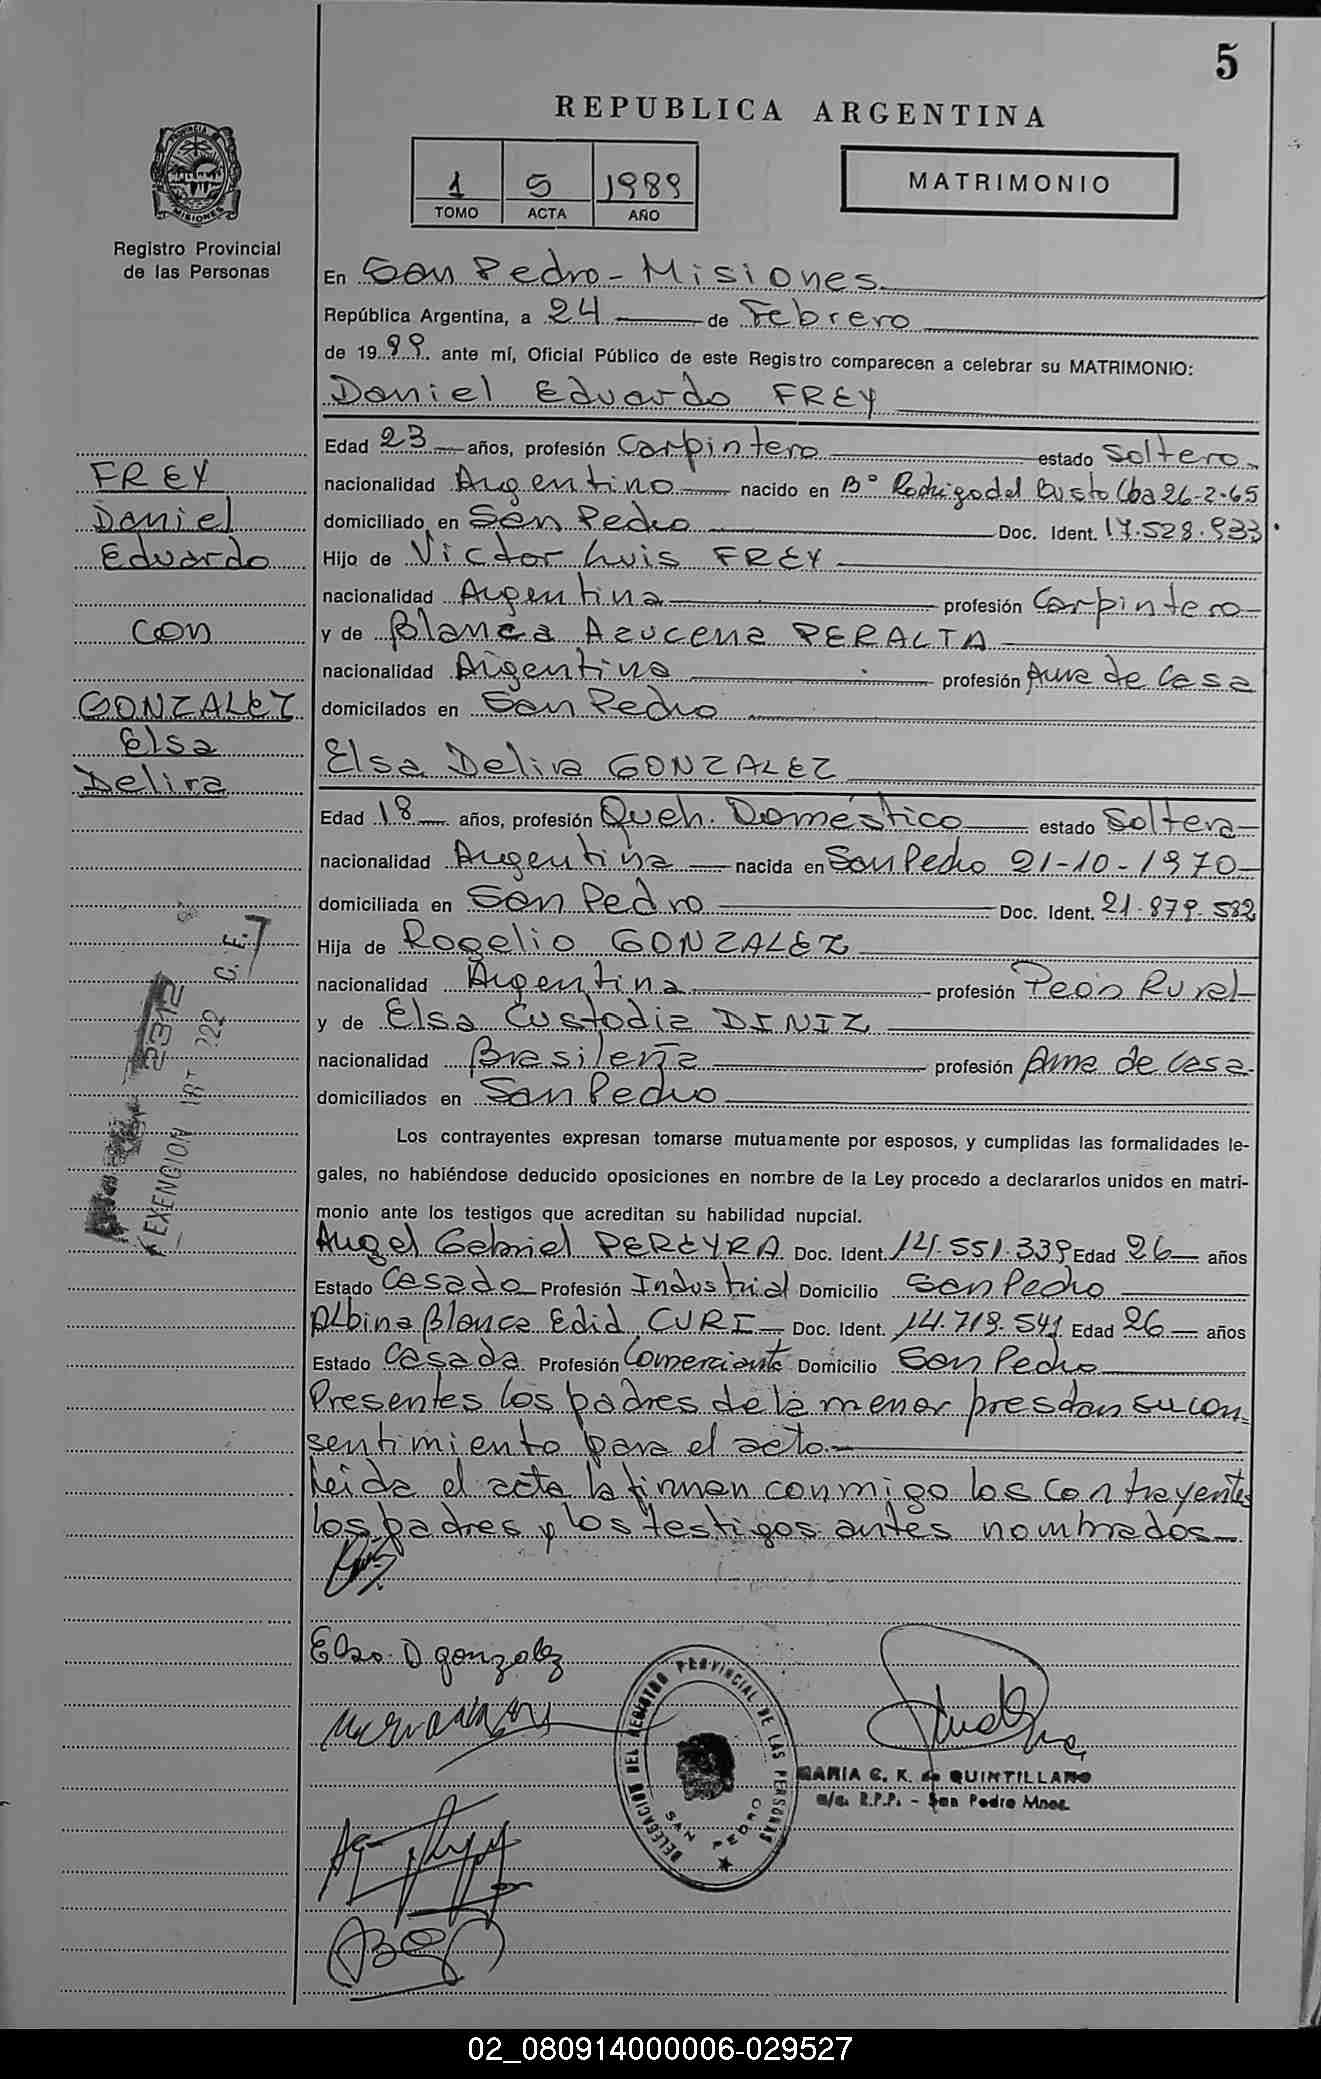 5
REPUBLICA ARGENTINA
1 5 1989
TOMO ACTA AÑO
MATRIMONIO
PROVINCIA DE MISIONES
Registro Provincial
de las Personas
En San Pedro - Misiones
República Argentina, a 24 de Febrero
de 1989. ante mí, Oficial Público de este Registro comparecen a celebrar su MATRIMONIO:
Daniel Eduardo FREY
Edad 23 años, profesión Carpintero estado Soltero
nacionalidad Argentino nacido en B° Rodrigo del Busto Cba 26-2-65
domiciliado en San Pedro Doc. Ident. 17.528.933
Hijo de Victor Luis FREY
nacionalidad Argentina profesión Carpintero
y de Blanca Azucena PERALTA
nacionalidad Argentina profesión Ama de Casa
domicilados en San Pedro
FREY
Daniel
Eduardo
con
GONZALEZ
Elsa
Delira
Elsa Delira GONZALEZ
Edad 18 años, profesión Queh. Doméstico estado Soltera
nacionalidad Argentina nacida en San Pedro 21-10-1970
domiciliada en San Pedro Doc. Ident. 21.879.582
Hija de Rogelio GONZALEZ
nacionalidad Argentina profesión Peón Rural
y de Elsa Custodia DINIZ
nacionalidad Brasileña profesión Ama de Casa
domiciliados en San Pedro
EXENCION 18T 222 C. F. 7
2312
Los contrayentes expresan tomarse mutuamente por esposos, y cumplidas las formalidades le-
gales, no habiéndose deducido oposiciones en nombre de la Ley procedo a declararlos unidos en matri-
monio ante los testigos que acreditan su habilidad nupcial.
Angel Gabriel PEREYRA Doc. Ident. 14.551.339 Edad 26 años
Estado Casado Profesión Industrial Domicilio San Pedro
Albina Blanca Edid CURI Doc. Ident. 14.719.541 Edad 26 años
Estado Casada Profesión Comerciante Domicilio San Pedro
Presentes los padres de la menor prestan su con-
sentimiento para el acto.
Leida el acta la firman conmigo los contrayentes
los padres y los testigos antes nombrados
Elsa D gonzalez
DELEGACION DEL REGISTRO PROVINCIAL DE LAS PERSONAS
SAN PEDRO
MARIA C. K. de QUINTILLANO
a/c. R.P.P. - San Pedro Mnes.
02_080914000006-029527